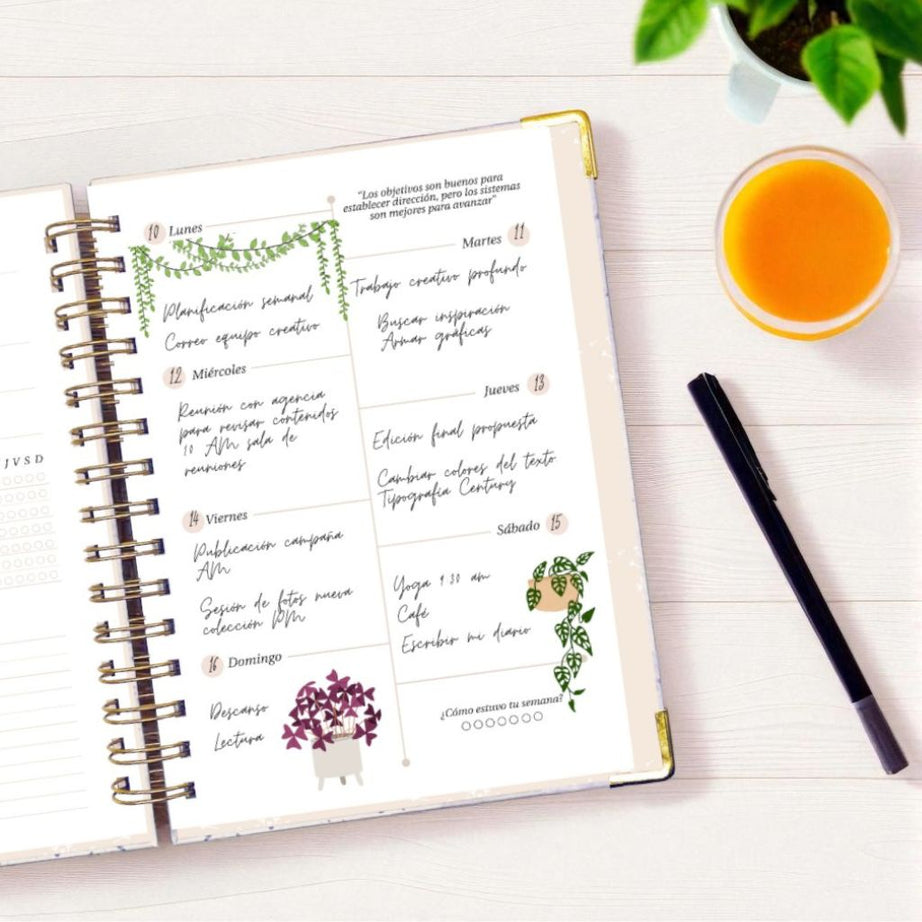 J V S D
"Los objetivos son buenos para
establecer dirección, pero los sistemas
son mejores para avanzar"
10 Lunes
Planificación semanal
Correo equipo creativo
Martes 11
Trabajo creativo profundo
Buscar inspiración
Armar gráficas
12 Miércoles
Reunión con agencia
para revisar contenidos
10 AM sala de
reuniones
Jueves 13
Edición final propuesta
Cambiar colores del texto
Tipografía Century
14 Viernes
Publicación campaña
AM
Sesión de fotos nueva
colección PM
Sábado 15
Yoga 9 30 am
Café
Escribir mi diario
16 Domingo
Descanso
Lectura
¿Cómo estuvo tu semana?